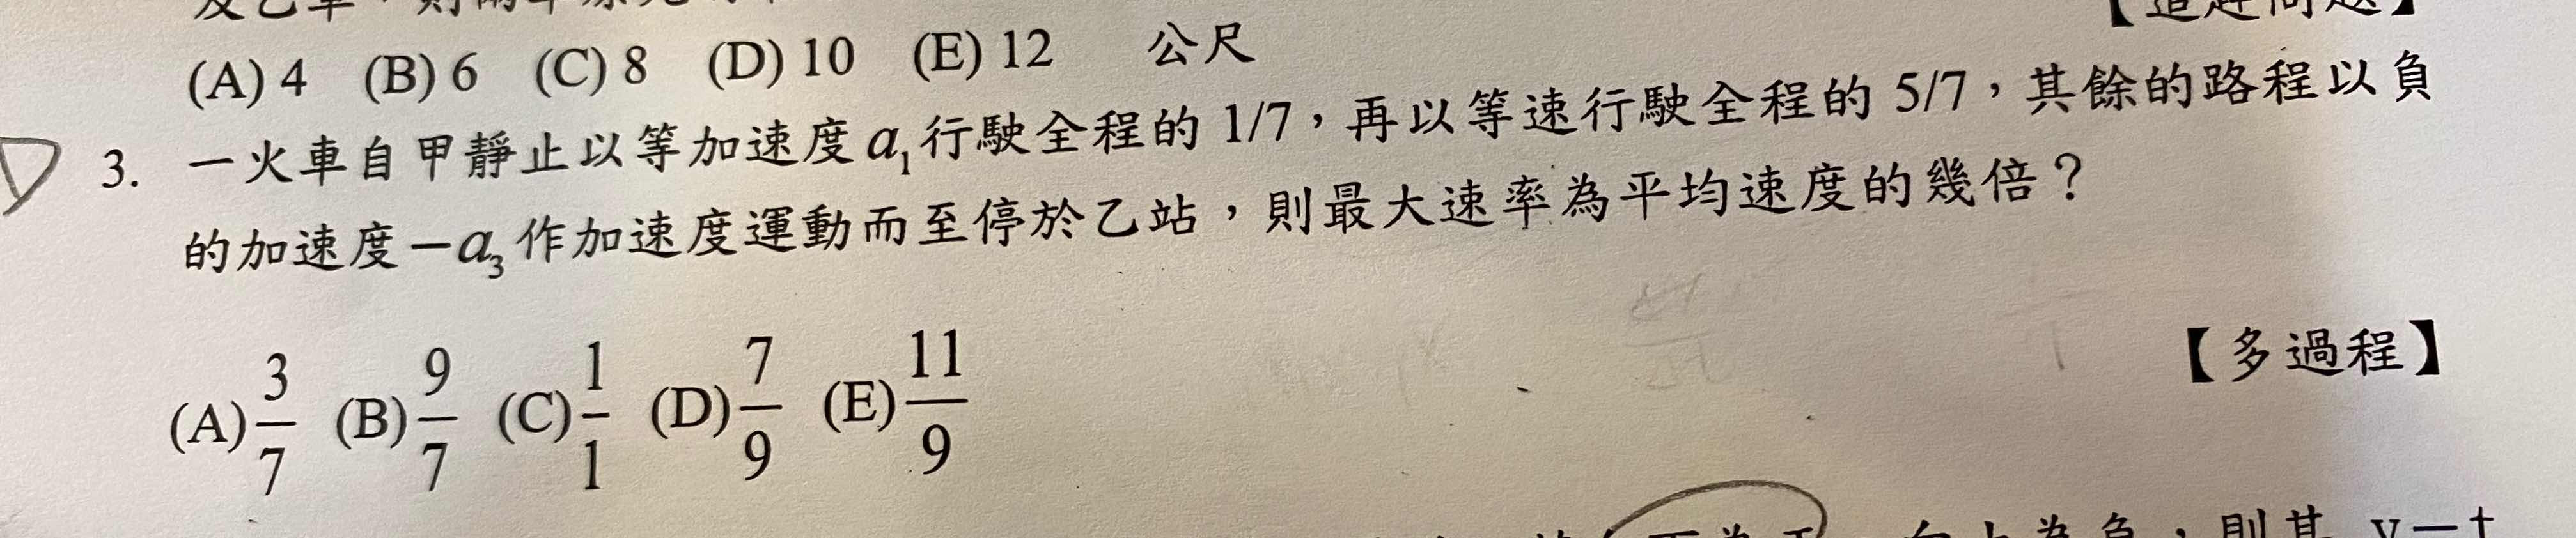 (A) 4 (B) 6 (C) 8 (D) 10 (E) 12 公尺
3. 一火車自甲靜止以等加速度a₁行駛全程的 1/7，再以等速行駛全程的 5/7，其餘的路程以負
的加速度－a₃作加速度運動而至停於乙站，則最大速率為平均速度的幾倍？
【多過程】
(A) 3/7 (B) 9/7 (C) 1/1 (D) 7/9 (E) 11/9